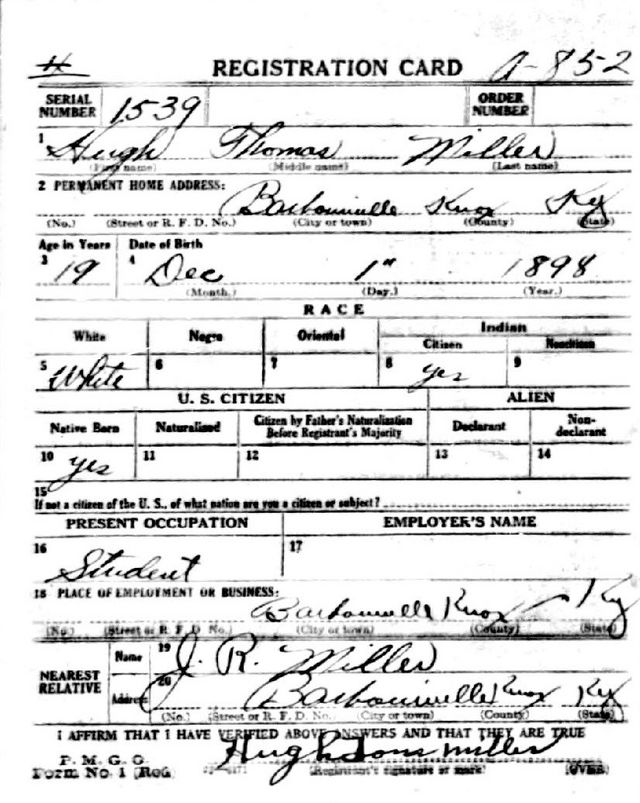 H REGISTRATION CARD A-852
SERIAL NUMBER 1539 ORDER NUMBER
1 Hugh Thomas Miller
(First name) (Middle name) (Last name)
2 PERMANENT HOME ADDRESS:
Barbourville Knox Ky
(No.) (Street or R. F. D. No.) (City or town) (County) (State)
Age in Years Date of Birth
3 19 4 Dec 1" 1898
(Month.) (Day.) (Year.)
RACE
White Negro Oriental Indian
Citizen Noncitizen
5 White 6 7 8 yes 9
U. S. CITIZEN ALIEN
Native Born Naturalized Citizen by Father's Naturalization Before Registrant's Majority Declarant Non-declarant
10 yes 11 12 13 14
15
If not a citizen of the U. S., of what nation are you a citizen or subject?
PRESENT OCCUPATION EMPLOYER'S NAME
16 Student 17
18 PLACE OF EMPLOYMENT OR BUSINESS:
Barbourville Knox Ky
(No.) (Street or R. F. D. No.) (City or town) (County) (State)
NEAREST RELATIVE Name 19 J. R. Miller
Address 20 Barbourville Knox Ky
(No.) (Street or R. F. D. No.) (City or town) (County) (State)
I AFFIRM THAT I HAVE VERIFIED ABOVE ANSWERS AND THAT THEY ARE TRUE
P. M. G. O. Hugh Miller
Form No. 1 (Red) (Registrant's signature or mark) (OVER)